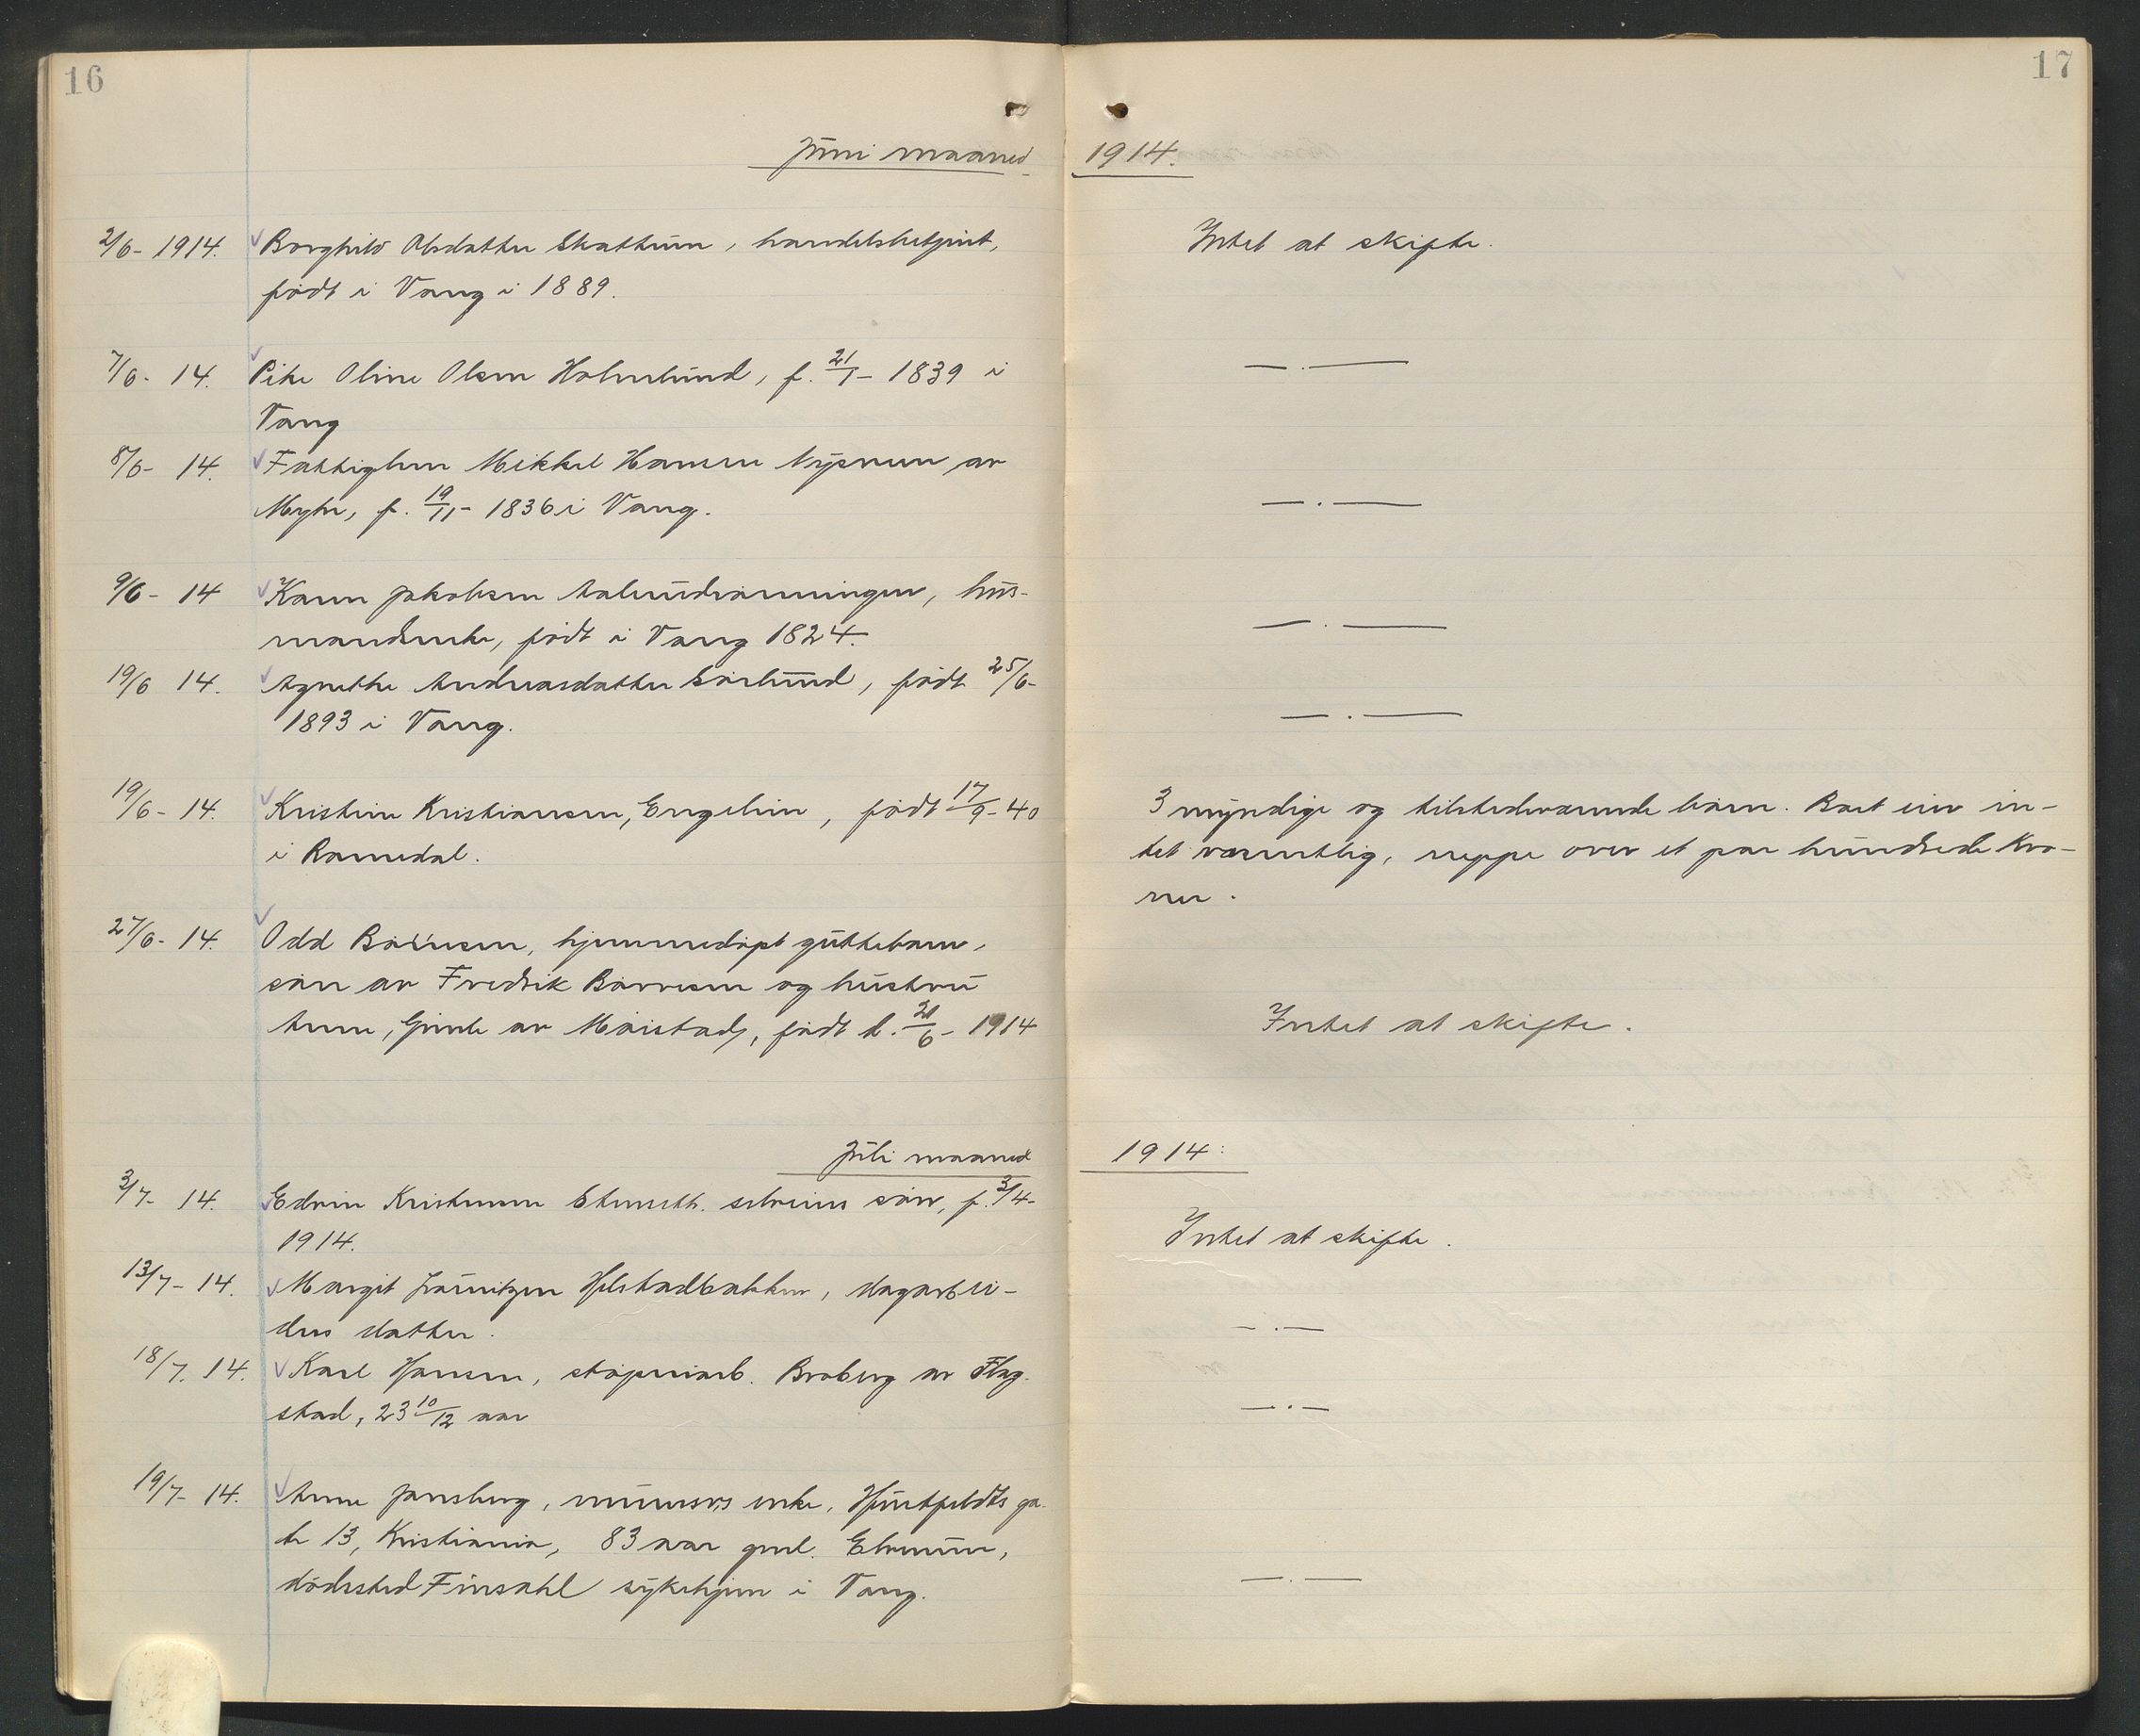 16
17
Juni maaned 1914.
2/6- 1914. Borghild Olsdatter Skattum, handelsbetjent, Intet at skifte.
født i Vang i 1889.
7/6- 14. Pike Oline Olsen Holmlund, f. 21/1- 1839 i — . —
Vang
8/6- 14. Fattiglem Mikkel Hansen av
Myhr, f. 19/11- 1836 i Vang. — . —
9/6- 14 Karen Jakobsen hus-
mandsenke, født i Vang 1824. — . —
19/6 14. Agnethe Andreasdatter Sørlund, født 25/6-
1893 i Vang. — . —
19/6- 14. Kristine Kristiansen, Engelien, født 17/9- 40 3 myndige og tilstedeværende børn. Boet eier in-
i Romedal. tet væsentlig, neppe over et par hundrede Kro-
ner.
27/6- 14. Odd hjemmedøpt guttebarn,
søn av Fredrik Børresen og hustru
Anna, Grimle av Møistad, født d. 21/6- 1914 Intet at skifte.
Juli maaned 1914:
3/7- 14. Edvin Kristensen søn, f. 3/4-
1914. Intet at skifte.
13/7- 14. Margit Hjelstadbakken, dagarbei-
ders datter. — . —
18/7. 14. Karl Hansen, støperiarb. Broberg av Flag-
stad, 23 10/12 aar — . —
19/7- 14. Anne Jansberg, murersvs enke, Huitfeldts ga-
te 13, Kristiania, 83 aar gml. Elverum,
dødssted Finsahl sykehjem i Vang. — . —